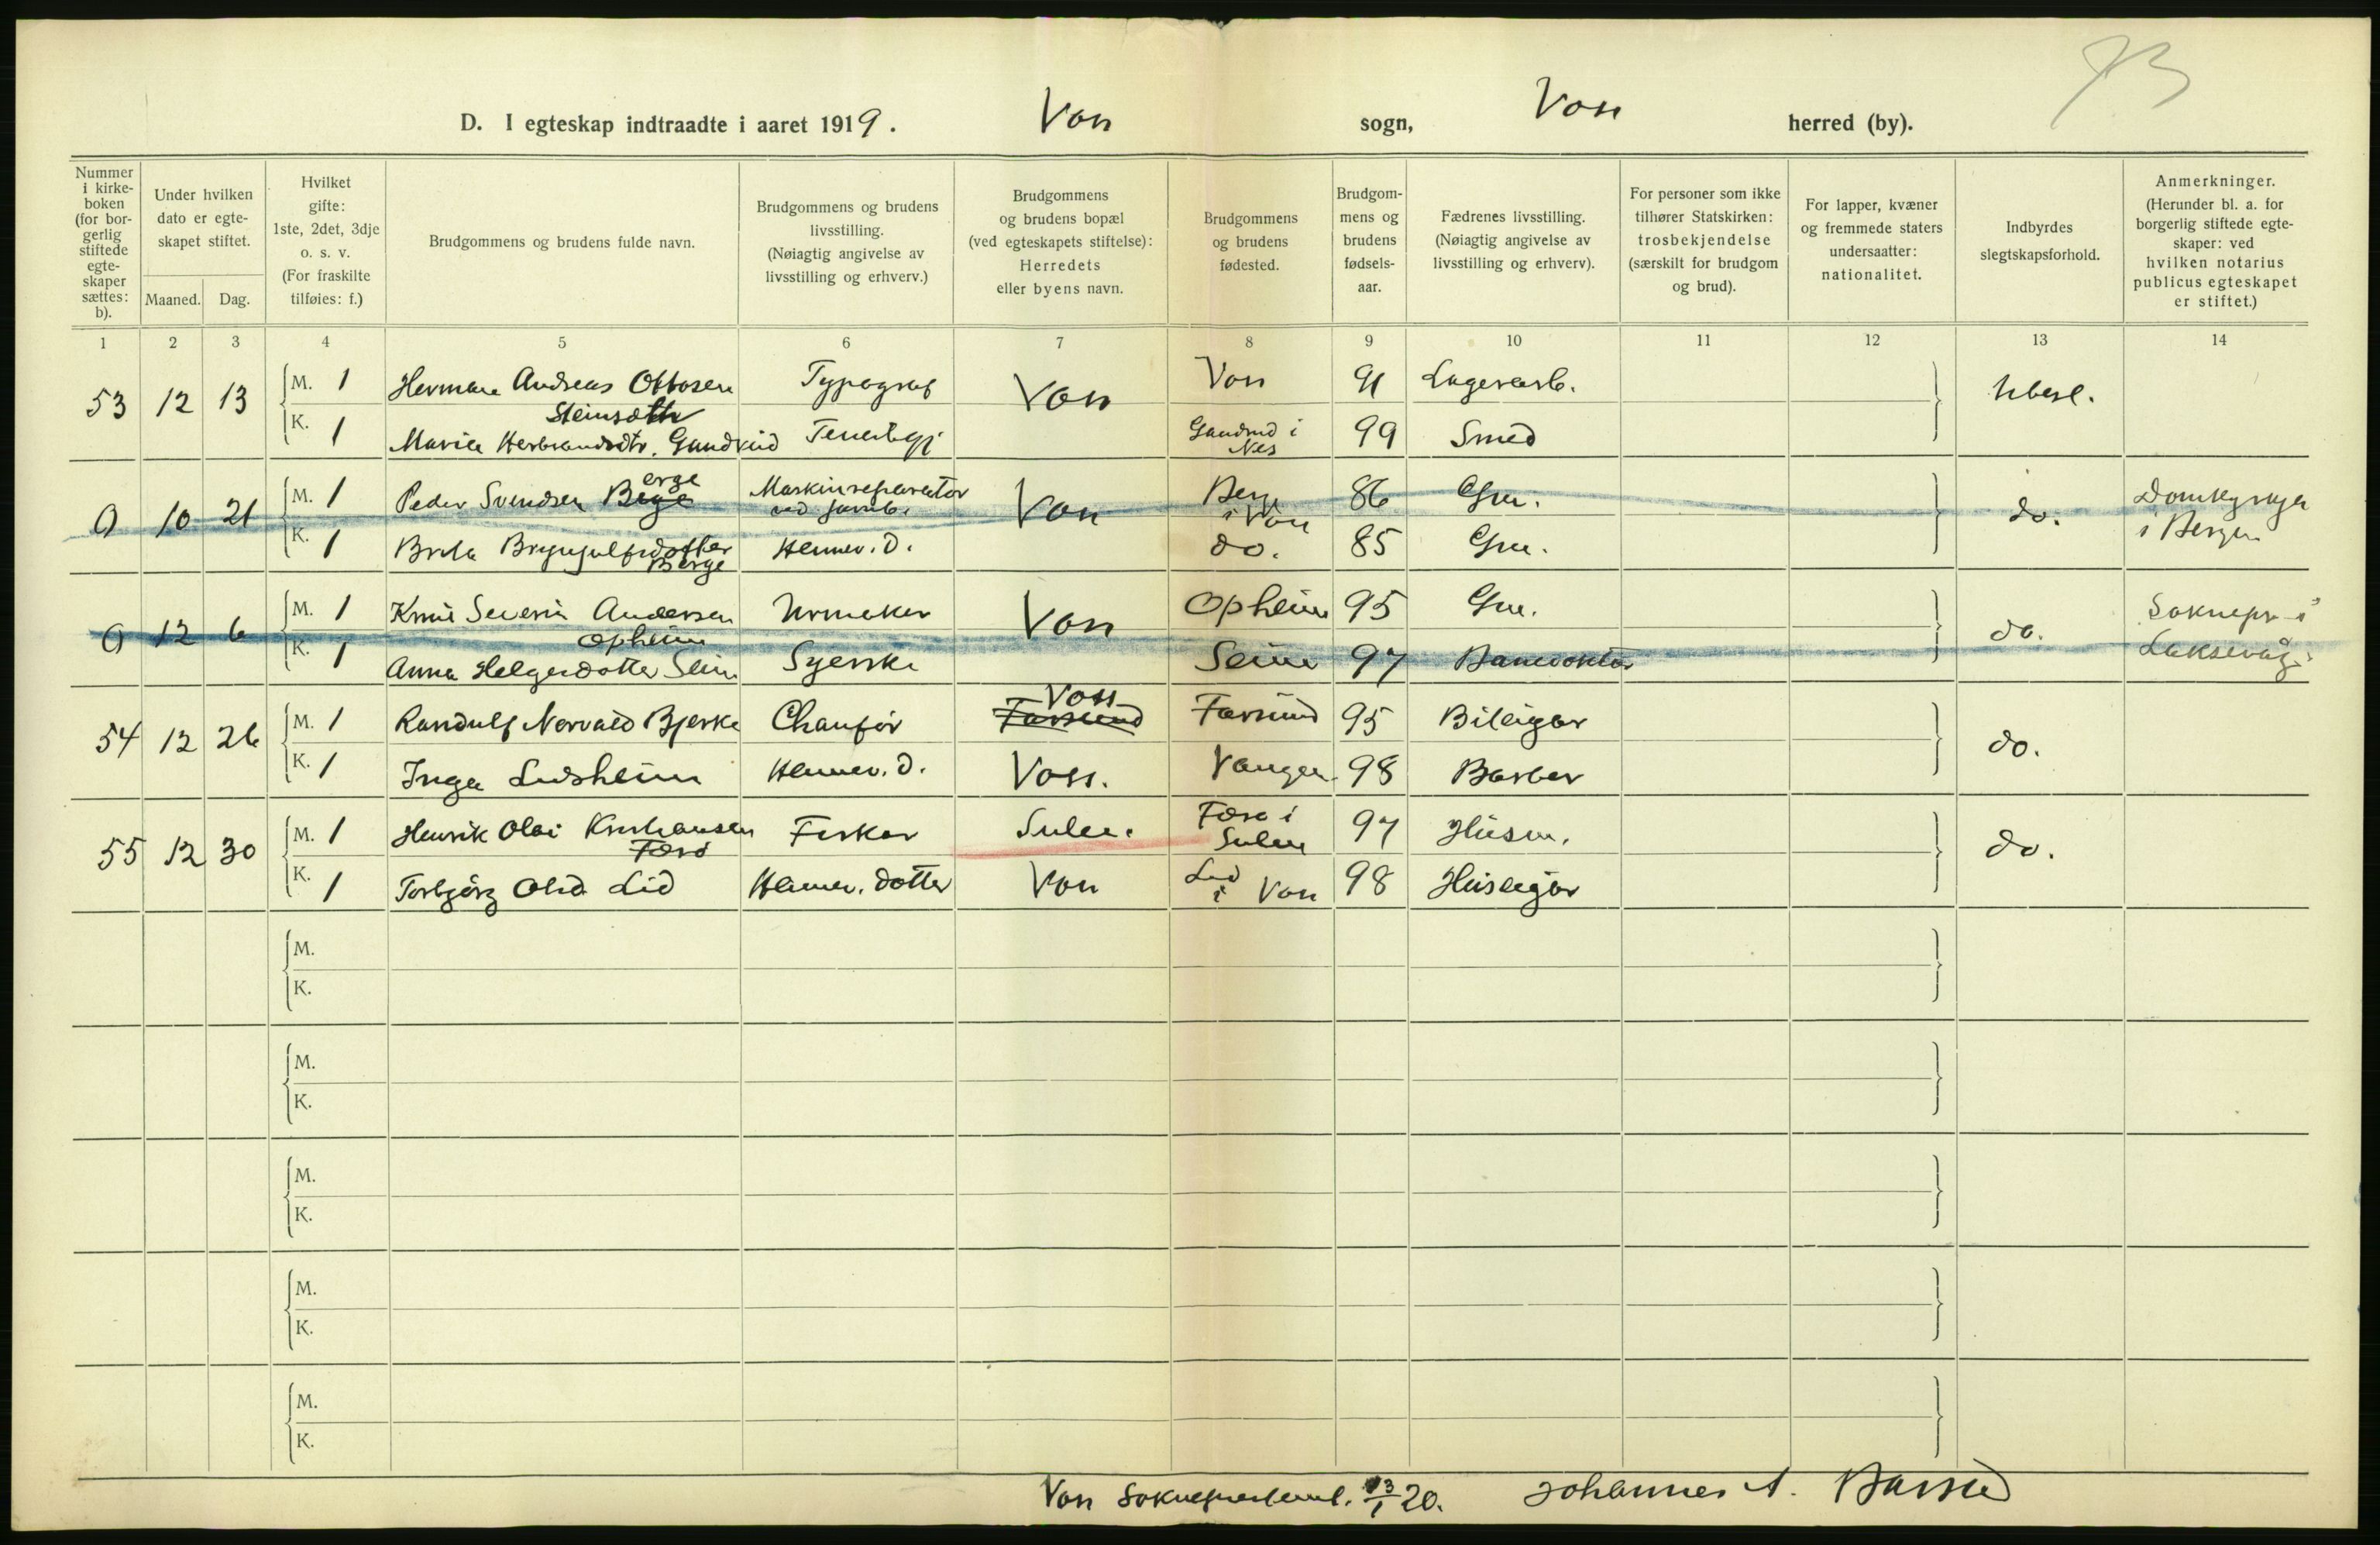 73
D. I egteskap indtraadte i aaret 1919. Voss sogn, Voss herred (by).
Nummer i kirke-boken (for bor-gerlig stiftede egte-skaper sættes: b).
Under hvilken dato er egte-skapet stiftet.
Maaned. Dag.
Hvilket gifte: 1ste, 2det, 3dje o. s. v. (For fraskilte tilføies: f.)
Brudgommens og brudens fulde navn.
Brudgommens og brudens livsstilling. (Nøiagtig angivelse av livsstilling og erhverv.)
Brudgommens og brudens bopæl (ved egteskapets stiftelse): Herredets eller byens navn.
Brudgommens og brudens fødested.
Brudgom-mens og brudens fødsels-aar.
Fædrenes livsstilling. (Nøiagtig angivelse av livsstilling og erhverv).
For personer som ikke tilhører Statskirken: trosbekjendelse (særskilt for brudgom og brud).
For lapper, kvæner og fremmede staters undersaatter: nationalitet.
Indbyrdes slegtskapsforhold.
Anmerkninger. (Herunder bl. a. for borgerlig stiftede egte-skaper: ved hvilken notarius publicus egteskapet er stiftet.)
1 2 3 4 5 6 7 8 9 10 11 12 13 14
53 12 13 M. 1 Herman Andreas Ottosen Typograf Voss Voss 91 Lagerarb. Ubesl.
Steinsæth
K. 1 Maria Herbrandsdtr. Gandrud Tenestgj Gandrud i Nes 99 Smed
9 10 21 M. 1 Peder Svendsen Berge Maskinreparatør ved jarnb. Voss Berge i Voss 86 Gm. do. Domkyrkja i Bergen
K. 1 Brita Brynjulfsdotter Berge Heimev. d. do. 85 Gm.
9 12 6 M. 1 Knut Severin Andersen Urmaker Voss Opheim 95 Gm. do. Soknepr i Laksevåg
Opheim
K. 1 Anna Helgesdotter Seim Syerske Seim 97 Banevoktar
54 12 26 M. 1 Randulf Norvald Bjerke Chaufør Voss Farsund Farsund 95 Bileigar do.
K. 1 Inga Lidsheim Heimev. d. Voss. Vangen 98 Barber
55 12 30 M. 1 Henrik Olai Kristiansen Fiskar Sulen. Færø i Sulen 97 Husm. do.
Færø
K. 1 Torbjørg Olsd Lid Heimev. dotter Voss Lid i Voss 98 Huseigar
M.
K.
M.
K.
M.
K.
M.
K.
M.
K.
Voss Sokneprestemb. 13/1 20. Johannes A.